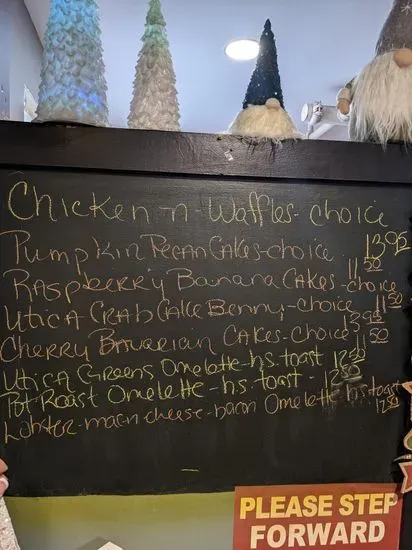 Chicken-n-Waffles-choice 13.95
Pumpkin Pecan Cakes-choice 11.50
Raspberry Banana Cakes-choice 11.50
Utica Crab Cake Benny-choice 13.95
Cherry Bavarian Cakes-choice 11.50
Utica Greens Omelette-h.s. toast
Pot Roast Omelette-h.s. toast-
Lobster-macn cheese-bacon Omelette h.s. toast
PLEASE STEP
FORWARD